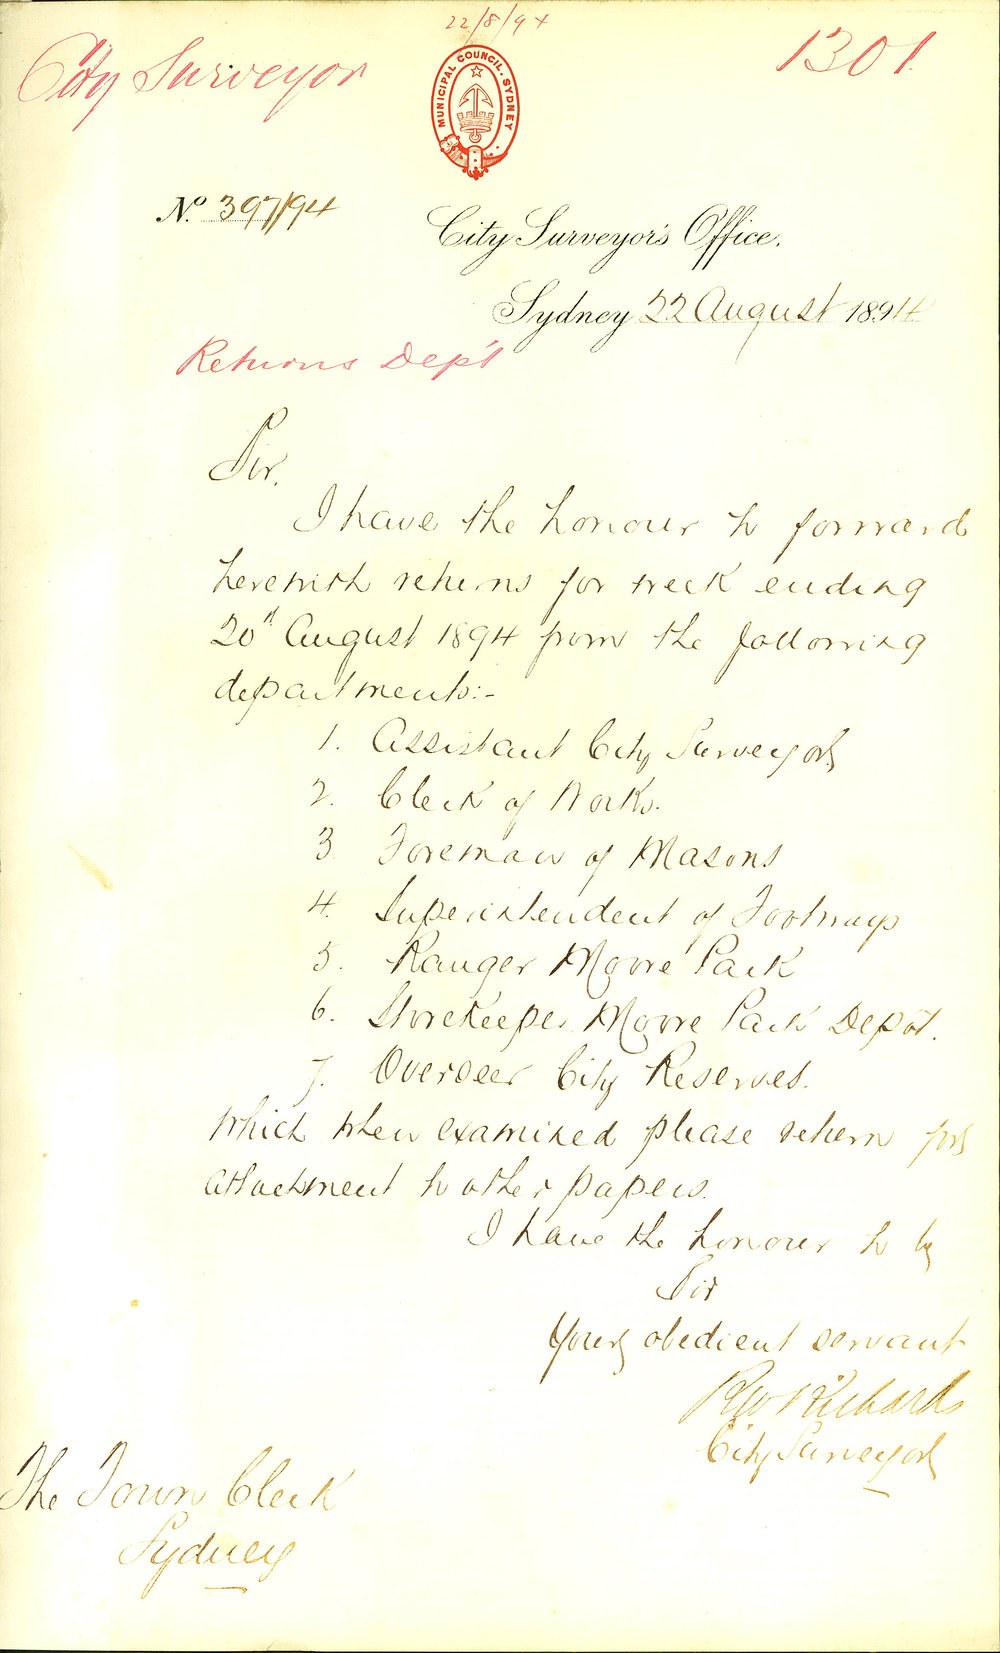 22/8/94
City Surveyor
1301.
MUNICIPAL COUNCIL. SYDNEY
No. 397/94
City Surveyor's Office.
Sydney 22 August 1894
Returns Dep't
Sir,
I have the honour to forward
herewith returns for week ending
20th August 1894 from the following
departments:-
1. Assistant City Surveyor
2. Clerk of Works.
3. Foreman of Masons
4. Superintendent of Footways
5. Ranger Moore Park
6. Storekeeper Moore Park Depôt.
7. Overseer City Reserves.
which when examined please return for
attachment to other papers.
I have the honour to be
Sir
Your obedient servant
RW Richards
City Surveyor
The Town Clerk
Sydney